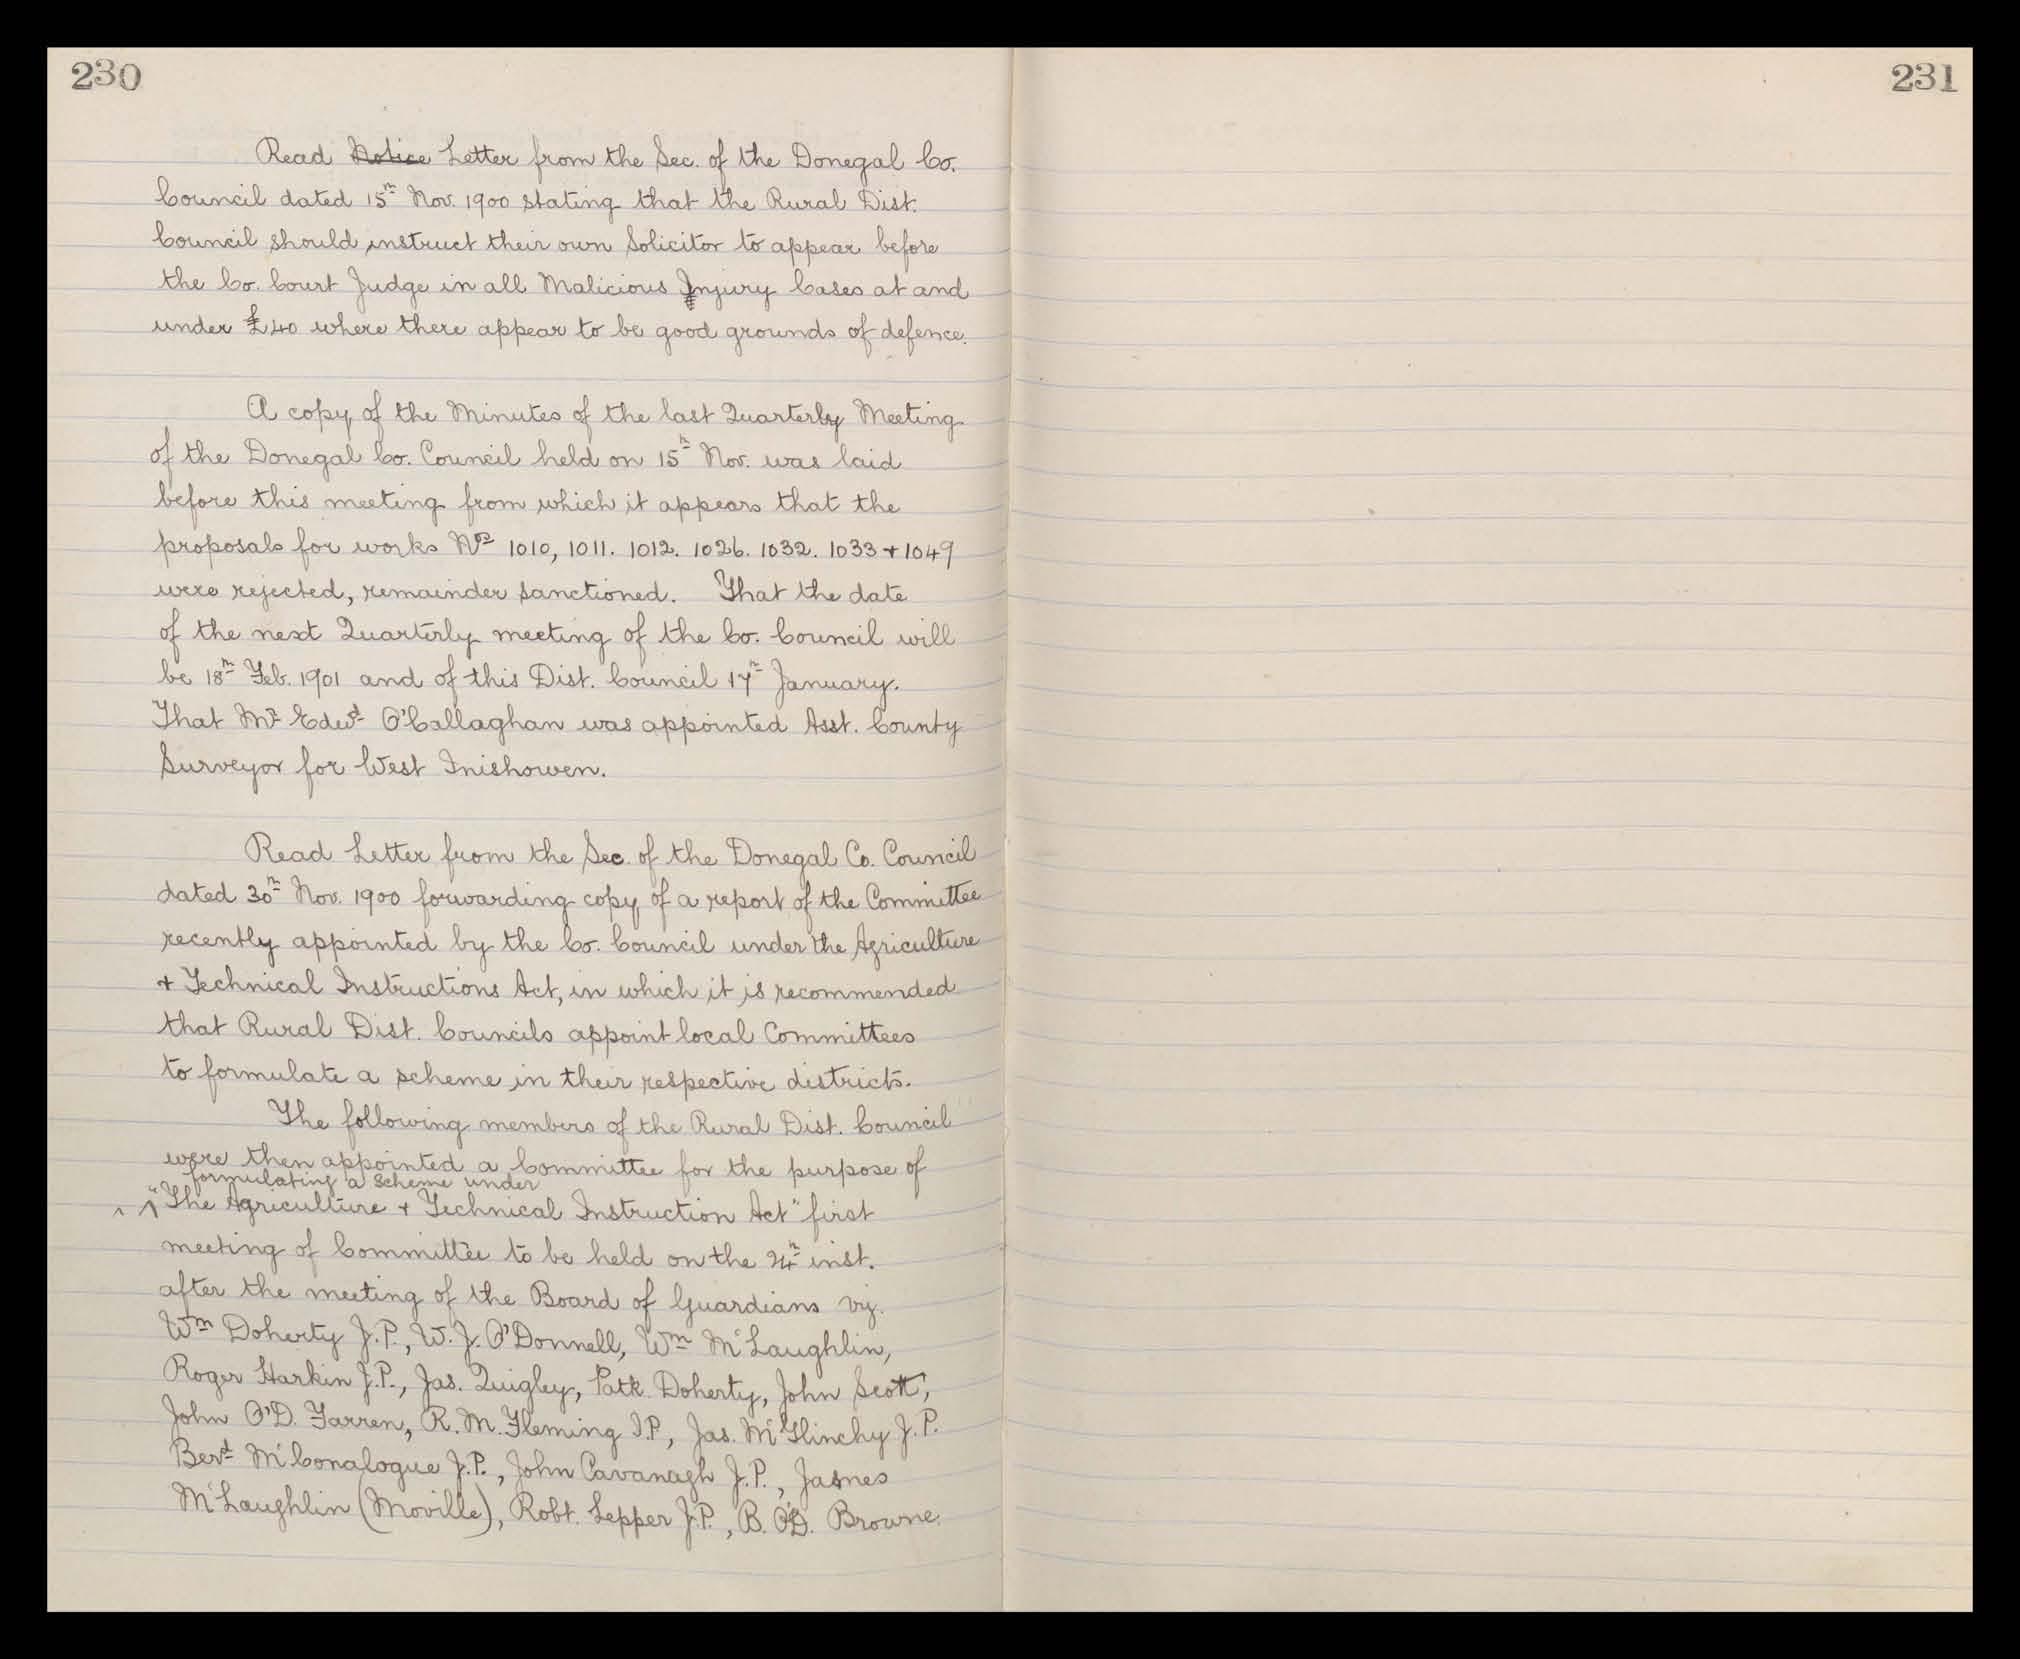 230
231
Read Notice Letter from the Sec. of the Donegal Co.
Council dated 15th Nov. 1900 stating that the Rural Dist.
Council should instruct their own Solicitor to appear before
the Co. Court Judge in all Malicious Injury Cases at and
under £40 where there appear to be good grounds of defence.
A copy of the Minutes of the last Quarterly Meeting
of the Donegal Co. Council held on 15th Nov. was laid
before this meeting from which it appears that the
proposals for works Nos 1010, 1011. 1012. 1026. 1032. 1033 + 1049
were rejected, remainder sanctioned. That the date
of the next Quarterly meeting of the Co. Council will
be 18th Feb. 1901 and of this Dist. Council 17th January.
That Mr Edwd O'Callaghan was appointed Asst. County
Surveyor for West Inishowen.
Read Letter from the Sec. of the Donegal Co. Council
dated 30th Nov. 1900 forwarding copy of a report of the Committee
recently appointed by the Co. Council under the Agriculture
+ Technical Instructions Act, in which it is recommended
that Rural Dist. Councils appoint local Committees
to formulate a scheme in their respective districts.
The following members of the Rural Dist. Council
were then appointed a Committee for the purpose of
formulating a scheme under
"The Agriculture + Technical Instruction Act" first
meeting of Committee to be held on the 24th inst.
after the meeting of the Board of Guardians viz.
Wm Doherty J.P., W. J. O'Donnell, Wm McLaughlin,
Roger Harkin J.P., Jas. Quigley, Patk. Doherty, John Scott,
John O'D. Farren, R. M. Fleming J.P, Jas. McGlinchy J.P.
Berd McConalogue J.P., John Cavanagh J.P., James
McLaughlin (Moville), Robt. Lepper J.P., B. O'D. Browne.